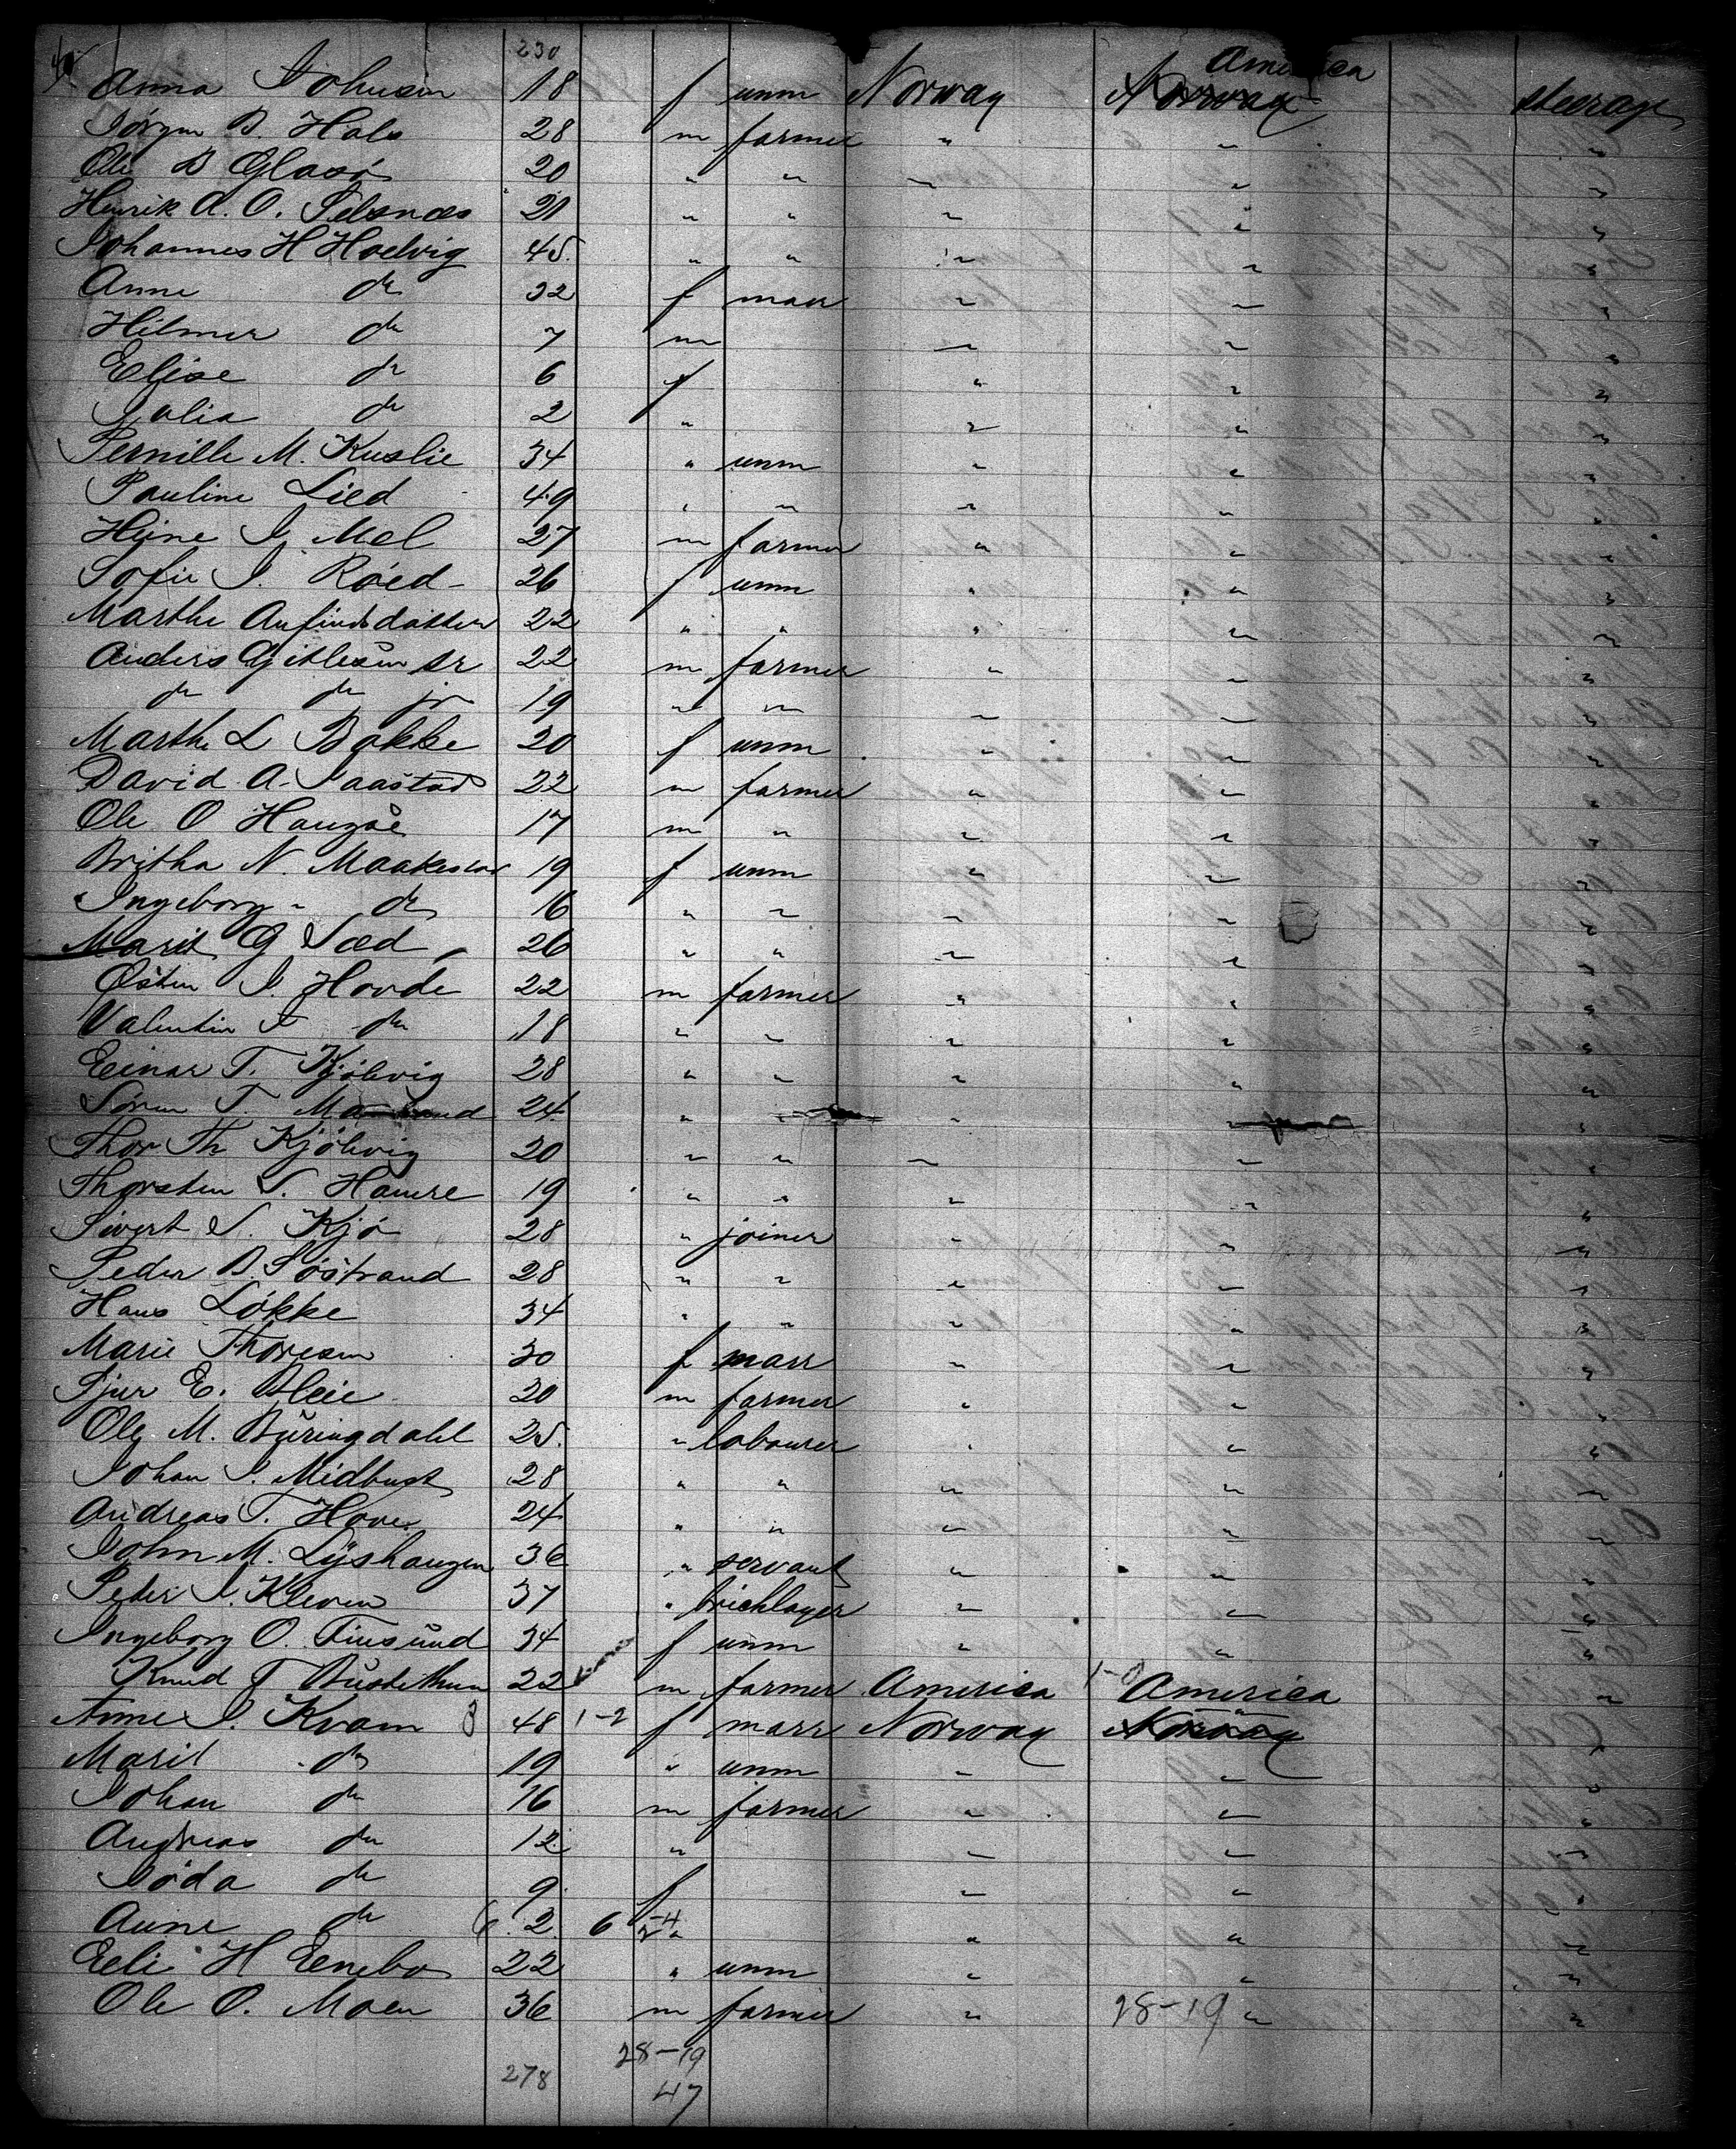 230
America
Anna Johnsen 18 f unm Norway Norway steerage
Jørgen B. Hals 28 m farmer " " "
Ole B Glasø 20 " " " " "
Henrik A. O. Selsnæs 21 " " " " "
Johannes H Hoelvig 45. " " " " "
Anne do 32 f marr " " "
Hilmer do 7 m " " "
Elise do 6 f " " "
Julia do 2 " " " "
Pernille M. Kuslie 34 " unm " " "
Pauline Lied 49 " " " " "
Heine J. Mel 27 m farmer " " "
Sofie J. Røed 26 f unm " " "
Marthe Anfindsdatter 22 " " " " "
Anders Gitlesen sr 22 m farmer " " "
do do jr 19 " " " " "
Marthe L Bakke 20 f unm " " "
David A. Saastad 22 m farmer " " "
Ole O Haugse 17 m " " " "
Britha N. Maakestad 19 f unm " " "
Ingeborg " do 16 " " " " "
Marit G Sæd 26 " " " " "
Østen J. Hovde 22 m farmer " " "
Valentin J do 18 " " " " "
Einar T. Kjølvig 28 " " " " "
Søren T. 24 " " " " "
Thor Th Kjølvig 20 " " " " "
Thorsten S. Hamre 19 " " " " "
Sivert S. Kjø 28 " joiner " " "
Peder B Søstrand 28 " " " " "
Hans Løkke 34 " " " " "
Marie Thoresen 30 f marr " " "
Sjur E. Bleie 20 m farmer " " "
Ole M. Buringdahl 25. " labourer " " "
Johan J. Midbust 28 " " " " "
Andreas T. Hove 24 " " " " "
John M. Lyshaugen 36 " servant " " "
Peder J. Kleven 37 " bricklayer " " "
Ingeborg O. Finsund 34 f unm " " "
Knud T 22 m farmer America 1-0 America "
Anne J. Kvam 3 48 1-2 f marr Norway Norway "
Marit do 19 " unm " " "
Johan do 16 m farmer " " "
Andreas do 12 " " " "
do 9 f " " "
Anne do 6 2 6 2-4 " " " "
Eeli H Eenebo 22 " unm " " "
Ole O. Moen 36 m farmer " 28-19 " "
28-19
278 47